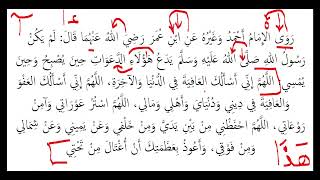 رَوَى الْإِمَامُ أَحْمَدُ وَغَيْرُهُ عَنِ ابْنِ عُمَرَ رَضِيَ اللهُ عَنْهُمَا قَالَ: لَمْ يَكُنْ
رَسُولُ اللهِ صَلَّى اللهُ عَلَيْهِ وَسَلَّمَ يَدَعُ هَؤُلَاءِ الدَّعَوَاتِ حِينَ يُصْبِحُ وَحِينَ
يُمْسِي اللَّهُمَّ إِنِّي أَسْأَلُكَ الْعَافِيَةَ فِي الدُّنْيَا وَالْآخِرَةِ، اللَّهُمَّ إِنِّي أَسْأَلُكَ الْعَفْوَ
وَالْعَافِيَةَ فِي دِينِي وَدُنْيَايَ وَأَهْلِي وَمَالِي، اللَّهُمَّ اسْتُرْ عَوْرَاتِي وَآمِنْ
رَوْعَاتِي، اللَّهُمَّ احْفَظْنِي مِنْ بَيْنِ يَدَيَّ وَمِنْ خَلْفِي وَعَنْ يَمِينِي وَعَنْ شِمَالِي
وَمِنْ فَوْقِي، وَأَعُوذُ بِعَظَمَتِكَ أَنْ أُغْتَالَ مِنْ تَحْتِي
هَذَا